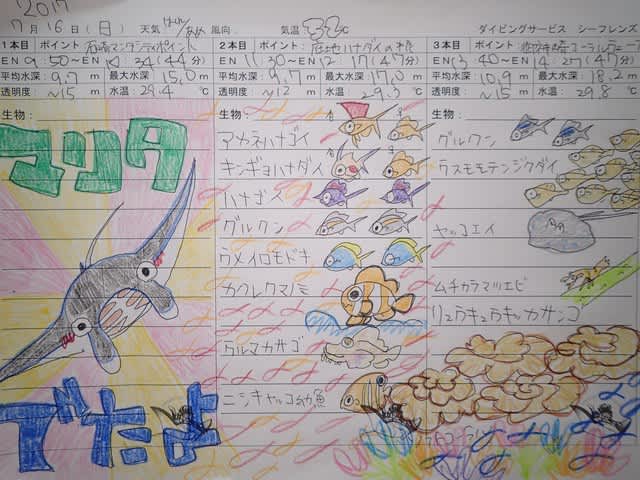 2017
7月16日(日) 天気 はれ/あめ 風向. 気温 32℃ ダイビングサービス シーフレンズ
1本目 ポイント: 石崎マンタシティポイント
EN 9:50~ 10:34(44分)
平均水深: 9.7m 最大水深: 15.0m
透明度: ~15m 水温: 29.4℃
生物:
マンタ
でたよ
2本目 ポイント: 底地ハナダイの根
EN 11:30~EN 12:17(47分)
平均水深: 9.7m 最大水深: 17.0m
透明度: ~12m 水温: 29.3℃
生物:
アカネハナゴイ
キンギョハナダイ
ハナゴイ
グルクン
ウメイロモドキ
カクレクマノミ
クルマカサゴ
ニシキヤッコ幼魚
3本目 ポイント:
EN 13:40~EN 14:27(47分)
平均水深: 10.9m 最大水深: 18.2m
透明度: ~15m 水温: 29.8℃
生物:
グルクン
ウスモモテンジクダイ
ヤッコエイ
ムチカラマツエビ
リュウキュウキッカサンゴ